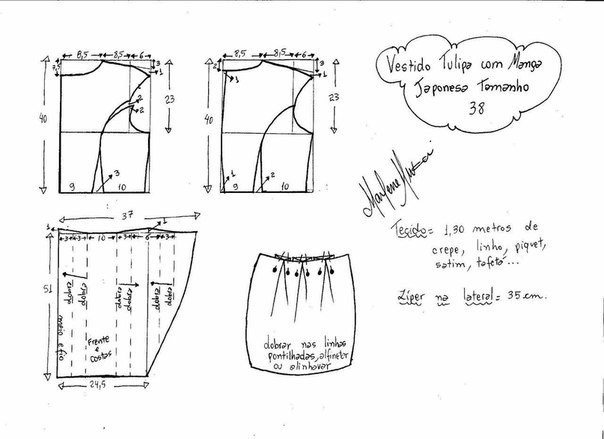 8,5 8,5 6
7,5
3
1
2
2
40
23
3
9 10
8,5 8,5 6
2
3
1
40
23
1
2
9 10
Vestido Tulipa com Manga
Japonesa Tamanho
38
Marlene Mukai
Tecido = 1,30 metros de
crepe, linho, piquet,
setim, tafetá...
Zíper na lateral = 35 cm.
37
1
1
3 3 10 3 6 3
51
dobra
dobra
dobra
dobra
dobra
dobra
meio e fio
Frente
e
costas
24,5
dobrar nas linhas
pontilhadas, alfinetar
ou alinhavar